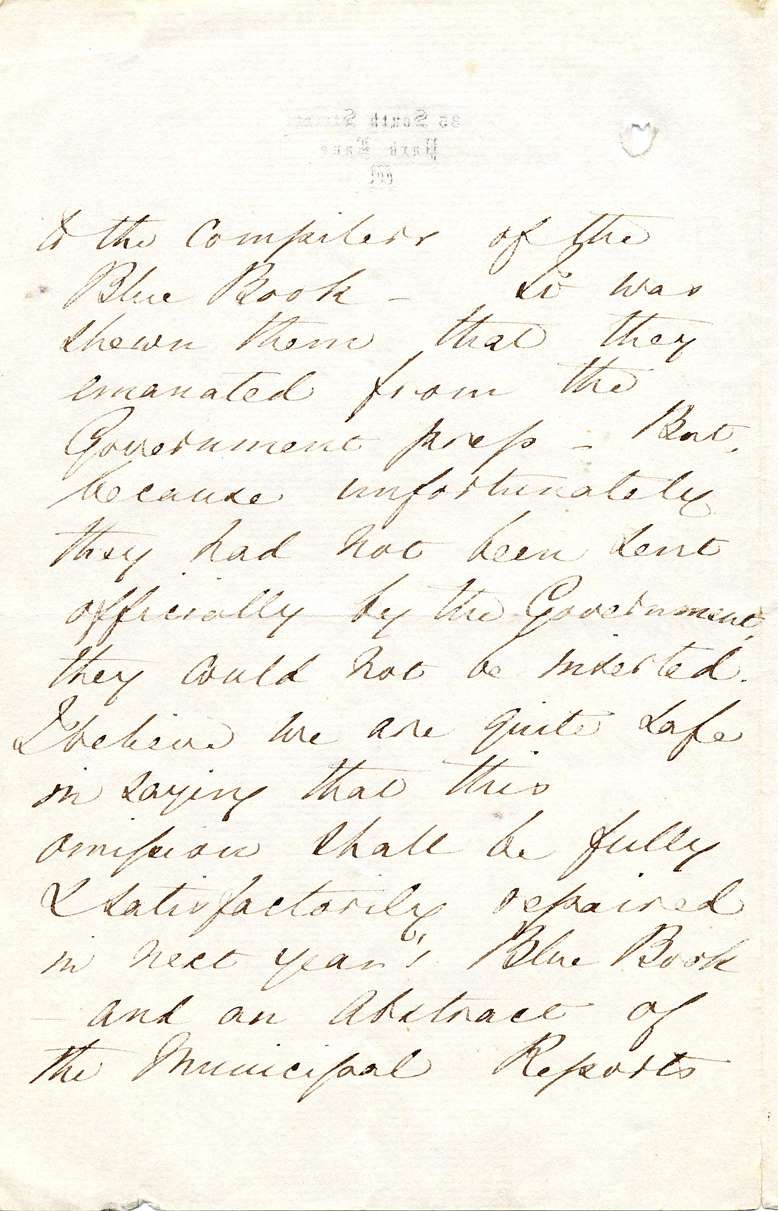 35 South Street
Park Lane
W
to the compilers of the
Blue Book – It was
shewn them that they
emanated from the
Government press – But,
because unfortunately
they had not been sent
officially by the Government,
they could not be inserted.
I believe we are quite safe
in saying that this
omission shall be fully
& satisfactorily repaired
in next year's Blue Book
– and an Abstract of
the Municipal Reports